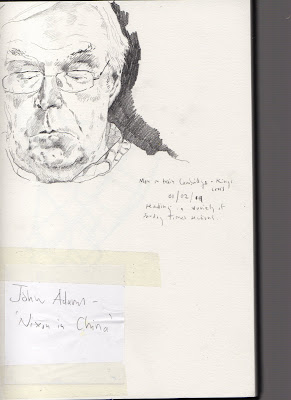 Man in train Cambridge - Kings
Cross
Reading a variety of
Sunday Times
John Adams -
'Nixon in China'